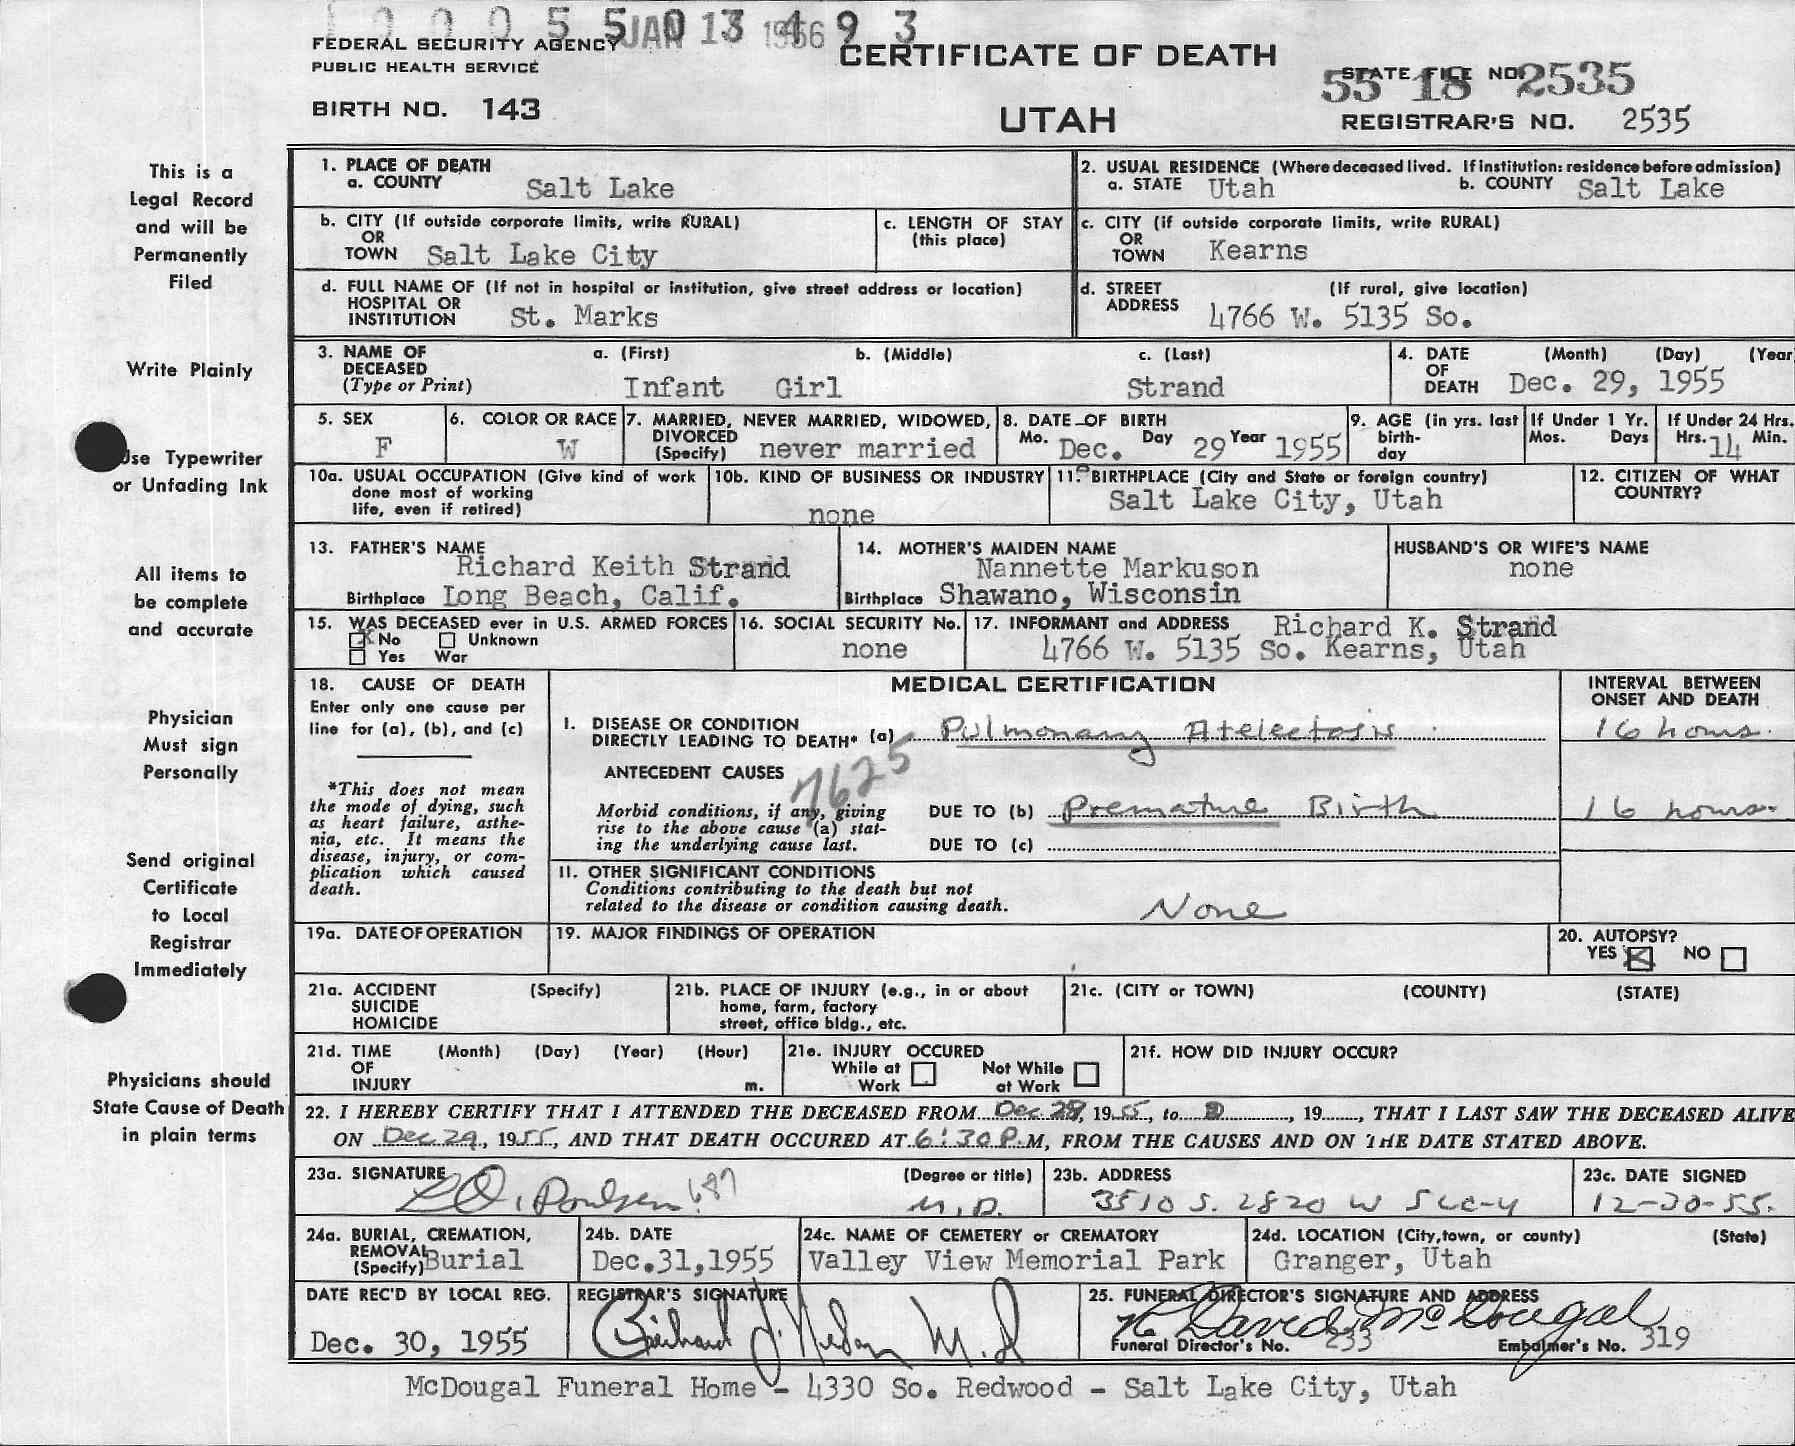 1 0 0 0 5 5 0 3 4 9 3
JAN 13 1956
FEDERAL SECURITY AGENCY
PUBLIC HEALTH SERVICE
CERTIFICATE OF DEATH
STATE FILE NO.
55 18 2535
BIRTH NO. 143
UTAH
REGISTRAR'S NO. 2535
This is a
Legal Record
and will be
Permanently
Filed
Write Plainly
Use Typewriter
or Unfading Ink
All items to
be complete
and accurate
Physician
Must sign
Personally
Send original
Certificate
to Local
Registrar
Immediately
Physicians should
State Cause of Death
in plain terms
1. PLACE OF DEATH
a. COUNTY Salt Lake
2. USUAL RESIDENCE (Where deceased lived. If institution: residence before admission)
a. STATE Utah b. COUNTY Salt Lake
b. CITY (If outside corporate limits, write RURAL)
OR
TOWN Salt Lake City
c. LENGTH OF STAY
(this place)
c. CITY (if outside corporate limits, write RURAL)
OR
TOWN Kearns
d. FULL NAME OF (If not in hospital or institution, give street address or location)
HOSPITAL OR
INSTITUTION St. Marks
d. STREET (If rural, give location)
ADDRESS 4766 W. 5135 So.
3. NAME OF a. (First) b. (Middle) c. (Last)
DECEASED
(Type or Print) Infant Girl Strand
4. DATE (Month) (Day) (Year
OF
DEATH Dec. 29, 1955
5. SEX
F
6. COLOR OR RACE
W
7. MARRIED, NEVER MARRIED, WIDOWED,
DIVORCED
(Specify) never married
8. DATE OF BIRTH
Mo. Dec. Day 29 Year 1955
9. AGE (in yrs. last
birth-
day
If Under 1 Yr.
Mos. Days
If Under 24 Hrs.
Hrs. 14 Min.
10a. USUAL OCCUPATION (Give kind of work
done most of working
life, even if retired)
10b. KIND OF BUSINESS OR INDUSTRY
none
11. BIRTHPLACE (City and State or foreign country)
Salt Lake City, Utah
12. CITIZEN OF WHAT
COUNTRY?
13. FATHER'S NAME
Richard Keith Strand
Birthplace Long Beach, Calif.
14. MOTHER'S MAIDEN NAME
Nannette Markuson
Birthplace Shawano, Wisconsin
HUSBAND'S OR WIFE'S NAME
none
15. WAS DECEASED ever in U.S. ARMED FORCES
No Unknown
Yes War
16. SOCIAL SECURITY No.
none
17. INFORMANT and ADDRESS Richard K. Strand
4766 W. 5135 So. Kearns, Utah
18. CAUSE OF DEATH
Enter only one cause per
line for (a), (b), and (c)
*This does not mean
the mode of dying, such
as heart failure, asthe-
nia, etc. It means the
disease, injury, or com-
plication which caused
death.
MEDICAL CERTIFICATION
INTERVAL BETWEEN
ONSET AND DEATH
I. DISEASE OR CONDITION
DIRECTLY LEADING TO DEATH* (a) Pulmonary Atelectasis 16 hours.
ANTECEDENT CAUSES
7625
Morbid conditions, if any, giving
rise to the above cause (a) stat-
ing the underlying cause last.
DUE TO (b) Premature Birth 16 hours.
DUE TO (c)
II. OTHER SIGNIFICANT CONDITIONS
Conditions contributing to the death but not
related to the disease or condition causing death. None
19a. DATE OF OPERATION
19. MAJOR FINDINGS OF OPERATION
20. AUTOPSY?
YES NO
21a. ACCIDENT (Specify)
SUICIDE
HOMICIDE
21b. PLACE OF INJURY (e.g., in or about
home, farm, factory
street, office bldg., etc.
21c. (CITY or TOWN) (COUNTY) (STATE)
21d. TIME (Month) (Day) (Year) (Hour)
OF
INJURY m.
21e. INJURY OCCURED
While at Work Not While at Work
21f. HOW DID INJURY OCCUR?
22. I HEREBY CERTIFY THAT I ATTENDED THE DECEASED FROM Dec 28, 1955, to D, 19, THAT I LAST SAW THE DECEASED ALIVE
ON Dec 29, 1955, AND THAT DEATH OCCURED AT 6:30 P.M, FROM THE CAUSES AND ON THE DATE STATED ABOVE.
23a. SIGNATURE (Degree or title)
Poulsen 687 M.D.
23b. ADDRESS
3510 S. 2820 W SLC-4
23c. DATE SIGNED
12-30-55.
24a. BURIAL, CREMATION,
REMOVAL
(Specify) Burial
24b. DATE
Dec.31,1955
24c. NAME OF CEMETERY or CREMATORY
Valley View Memorial Park
24d. LOCATION (City,town, or county) (State)
Granger, Utah
DATE REC'D BY LOCAL REG.
Dec. 30, 1955
REGISTRAR'S SIGNATURE
M.D
25. FUNERAL DIRECTOR'S SIGNATURE AND ADDRESS
David McDougal
Funeral Director's No. 233 Embalmer's No. 319
McDougal Funeral Home - 4330 So. Redwood - Salt Lake City, Utah